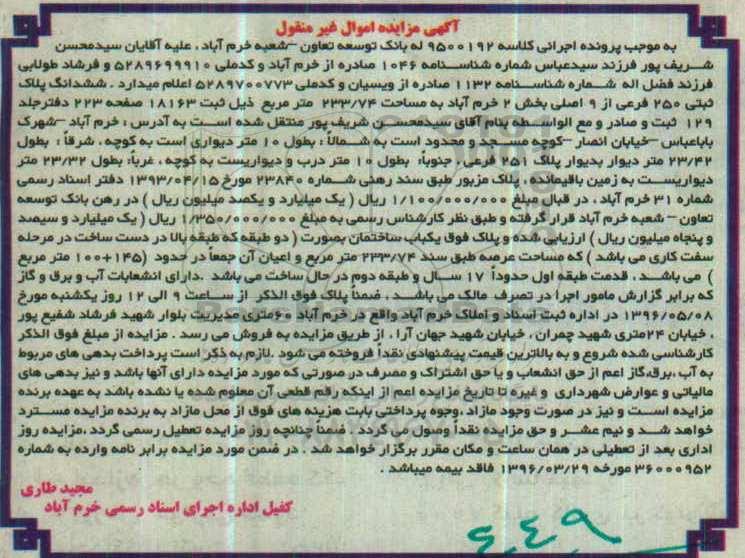 آگهی مزایده اموال غیر منقول
به موجب پرونده اجرائی کلاسه ۹۵۰۰۱۹۲ له بانک توسعه تعاون –شعبه خرم آباد ، علیه آقایان سیدمحسن
شریف پور فرزند سیدعباس شماره شناسنامه ۱۰۴۶ صادره از خرم آباد و کدملی ۵۲۸۹۶۹۹۹۱۰ و فرشاد طولابی
فرزند فضل اله شماره شناسنامه ۱۱۳۲ صادره از ویسیان و کدملی ۵۲۸۹۷۰۰۷۷۳ اعلام میدارد . ششدانگ پلاک
ثبتی ۲۵۰ فرعی از ۹ اصلی بخش ۲ خرم آباد به مساحت ۲۳۳/۷۴ متر مربع ذیل ثبت ۱۸۱۶۳ صفحه ۲۲۳ دفترجلد
۱۲۹ ثبت و صادر و مع الواسطه بنام آقای سیدمحسن شریف پور منتقل شده است به آدرس : خرم آباد –شهرک
باباعباس –خیابان انصار –کوچه مسجد و محدود است به شمالاً : بطول ۱۰ متر دیواری است به کوچه ، شرقاً : بطول
۲۳/۴۲ متر دیوار بدیوار پلاک ۲۵۱ فرعی . جنوباً: بطول ۱۰ متر درب و دیواریست به کوچه ، غرباً: بطول ۲۳/۳۲ متر
دیواریست به زمین باقیمانده . پلاک مزبور طبق سند رهنی شماره ۲۳۸۴۰ مورخ ۱۳۹۳/۰۴/۱۵ دفتر اسناد رسمی
شماره ۳۱ خرم آباد ، در قبال مبلغ ۱/۱۰۰/۰۰۰/۰۰۰ ریال ( یک میلیارد و یکصد میلیون ریال ) در رهن بانک توسعه
تعاون – شعبه خرم آباد قرار گرفته و طبق نظر کارشناس رسمی به مبلغ ۱/۳۵۰/۰۰۰/۰۰۰ ریال ( یک میلیارد و سیصد
و پنجاه میلیون ریال ) ارزیابی شده و پلاک فوق یکباب ساختمان بصورت ( دو طبقه که طبقه بالا در دست ساخت در مرحله
سفت کاری می باشد ) که مساحت عرصه طبق سند ۲۳۳/۷۴ متر مربع و اعیان آن جمعاً در حدود (۱۴۵+۱۰۰ متر مربع
) می باشد . قدمت طبقه اول حدوداً ۱۷ سال و طبقه دوم در حال ساخت می باشد .دارای انشعابات آب و برق و گاز
که برابر گزارش مامور اجرا در تصرف مالک می باشد . ضمناً پلاک فوق الذکر از ساعت ۹ الی ۱۲ روز یکشنبه مورخ
۱۳۹۶/۰۵/۰۸ در اداره ثبت اسناد و املاک خرم آباد واقع در خرم آباد ۶۰متری مدیریت بلوار شهید فرشاد شفیع پور
. خیابان ۲۴متری شهید چمران ، خیابان شهید جهان آرا ، از طریق مزایده به فروش می رسد . مزایده از مبلغ فوق الذکر
کارشناسی شده شروع و به بالاترین قیمت پیشنهادی نقداً فروخته می شود .لازم به ذکر است پرداخت بدهی های مربوط
به آب ،برق،گاز اعم از حق انشعاب و یا حق اشتراک و مصرف در صورتی که مورد مزایده دارای آنها باشد و نیز بدهی های
مالیاتی و عوارض شهرداری و غیره تا تاریخ مزایده اعم از اینکه رقم قطعی آن معلوم شده یا نشده باشد به عهده برنده
مزایده است و نیز در صورت وجود مازاد ،وجوه پرداختی بابت هزینه های فوق از محل مازاد به برنده مزایده مسترد
خواهد شد و نیم عشر و حق مزایده نقداً وصول می گردد . ضمناً چنانچه روز مزایده تعطیل رسمی گردد ،مزایده روز
اداری بعد از تعطیلی در همان ساعت و مکان مقرر برگزار خواهد شد . در ضمن مورد مزایده برابر نامه وارده به شماره
۳۶۰۰۰۹۵۲ مورخه ۱۳۹۶/۰۳/۲۹ فاقد بیمه میباشد .
مجید طاری
کفیل اداره اجرای اسناد رسمی خرم آباد
۶۴۹